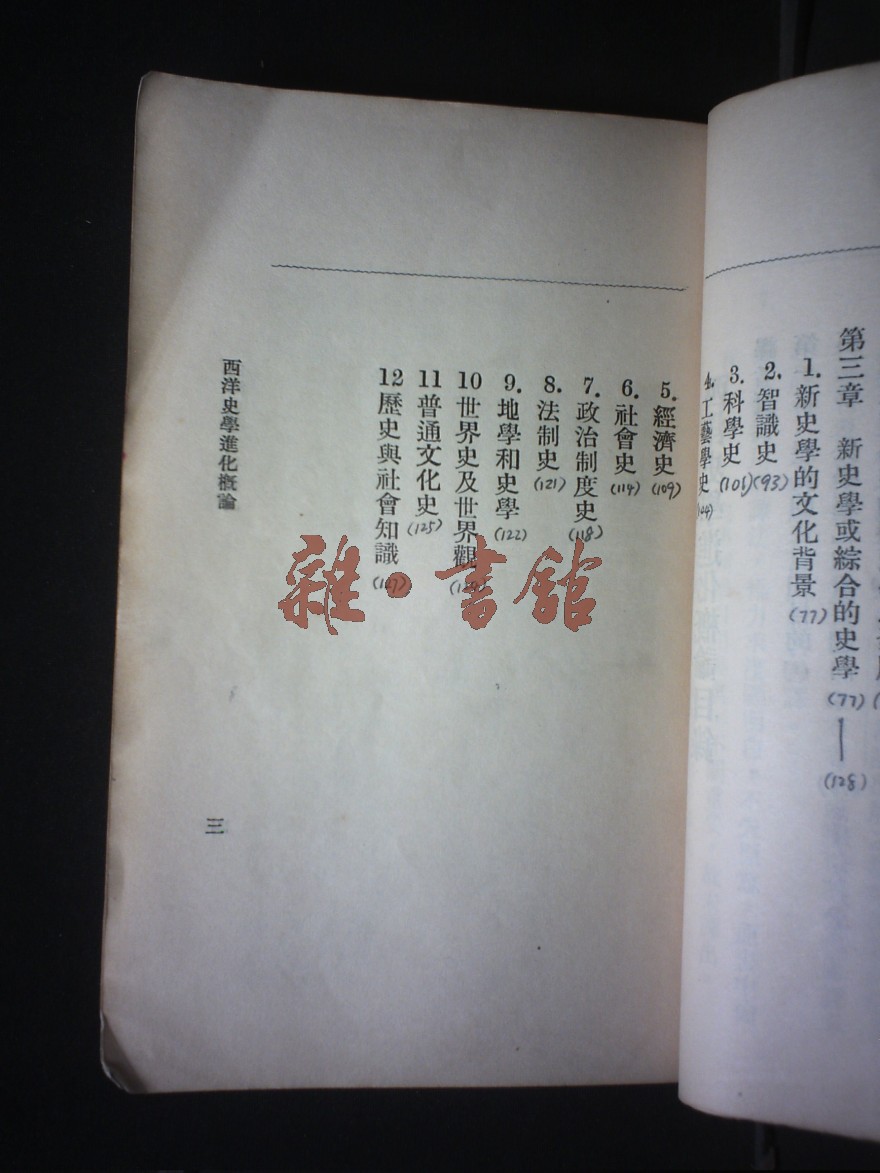 第三章　新史學或綜合的史學 (77)—(128)
1. 新史學的文化背景 (77)
2. 智識史 (93)
3. 科學史 (101)
4. 工藝學史
5. 經濟史 (109)
6. 社會史 (114)
7. 政治制度史 (118)
8. 法制史 (121)
9. 地學和史學 (122)
10 世界史及世界觀
11 普通文化史 (125)
12 歷史與社會知識
西洋史學進化概論
三
雜·書館